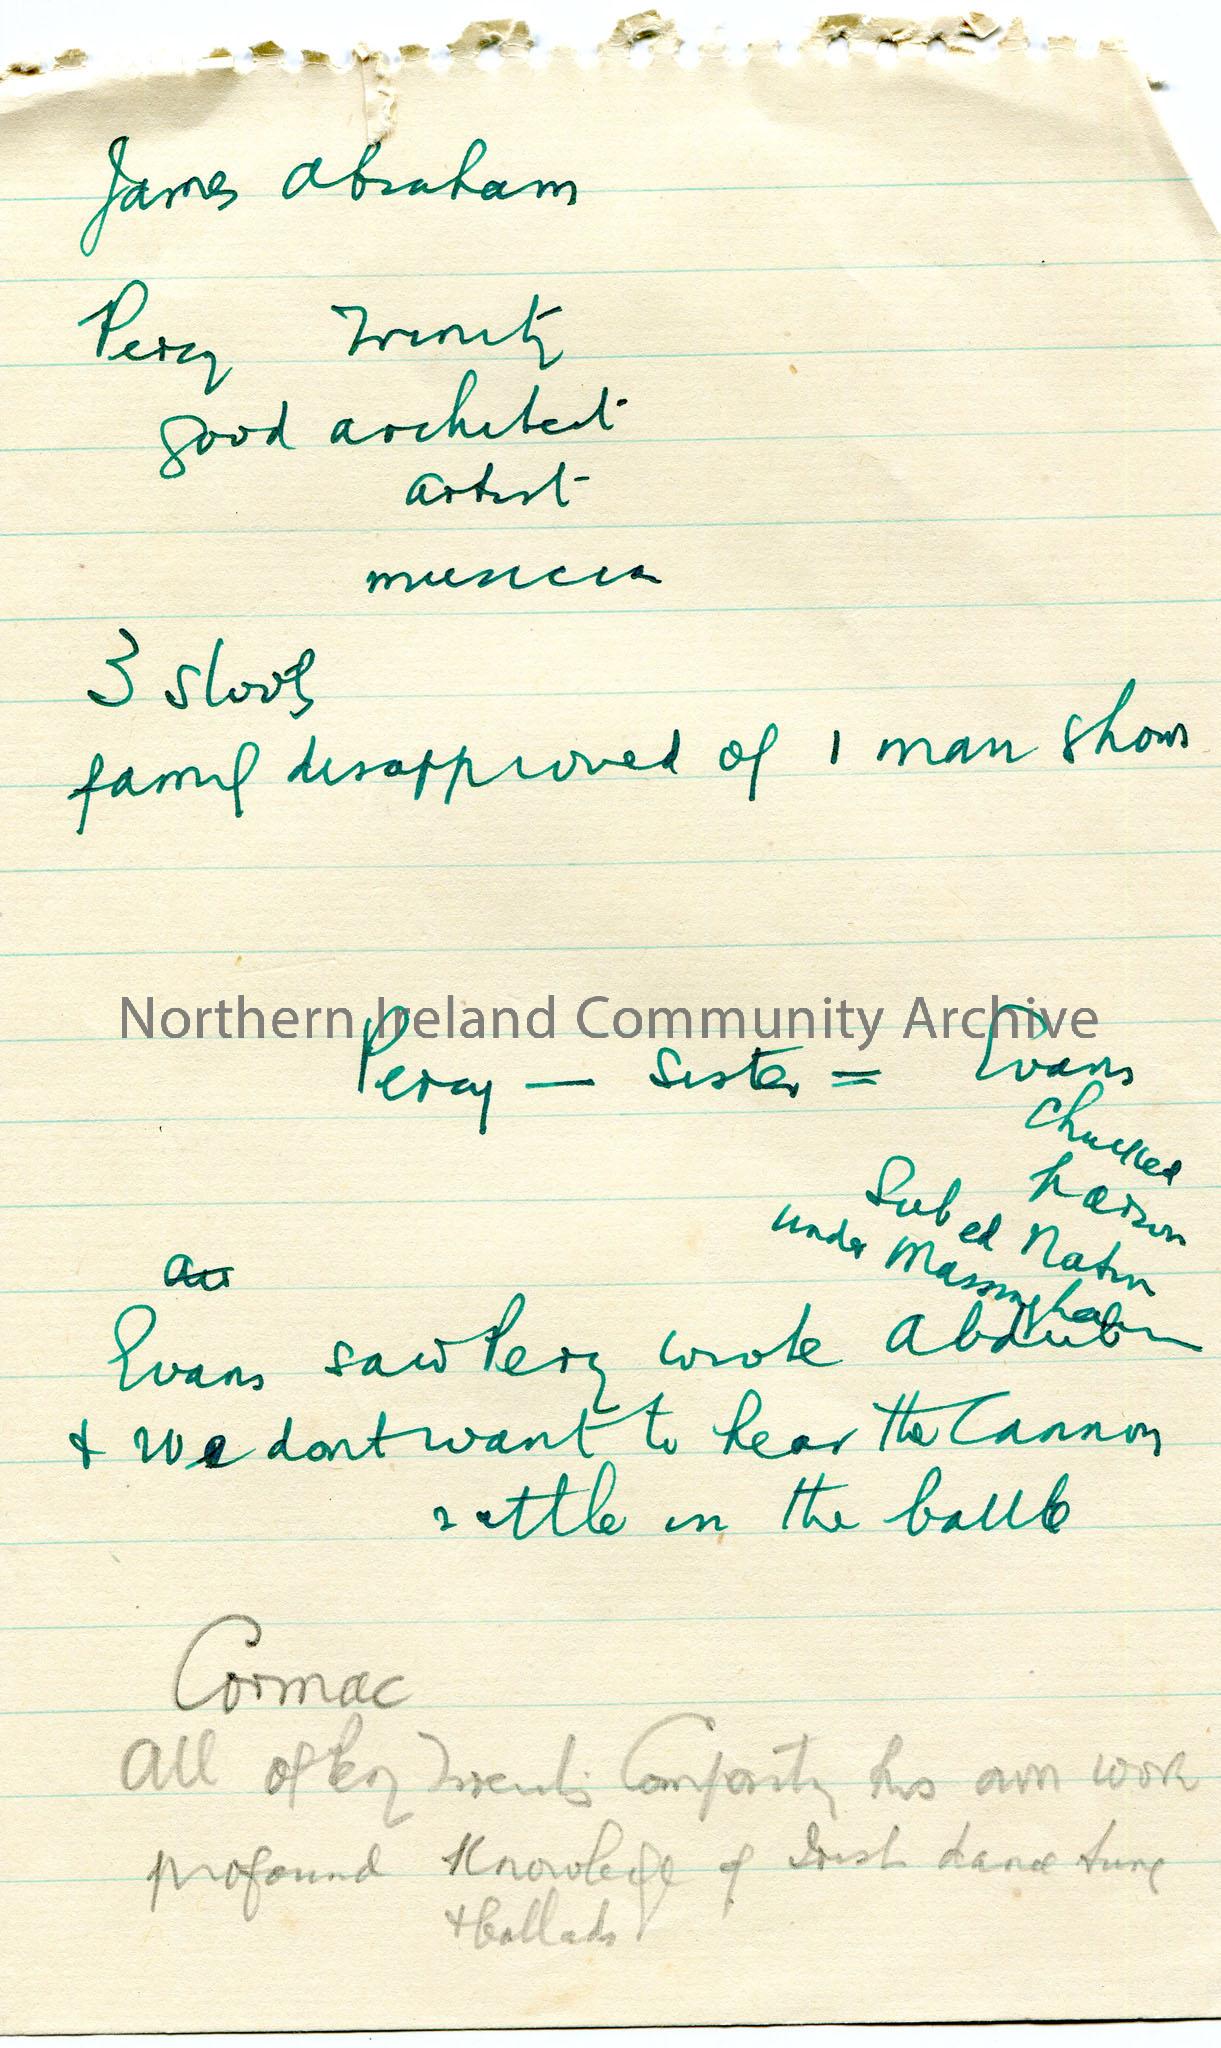 James Abraham
Percy Trinity
good architect
artist
musician
3 stools
family disapproved of 1 man shows
Northern Ireland Community Archive
Percy — sister = Evans
chucked
Sub ed Nation
under Massingham
au
Evans saw Percy wrote Abdul
& We dont want to hear the Cannon
rattle in the battle
Cormac
All of Percy Composity his own work
profound knowledge of Irish dance tune
& ballads